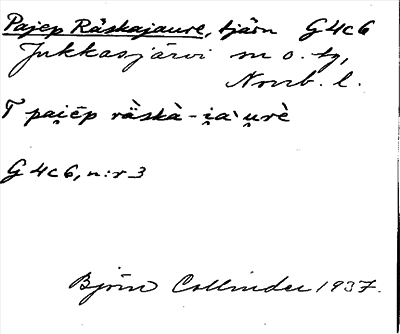 Pajep Räskajaure, tjärn G4c6
Jukkasjärvi sn o. tg,
Norrb. l.
T pai̯ēp räskà-i̯a`u̯rè
G 4c6, n:r 3
Björn Collinder 1937.